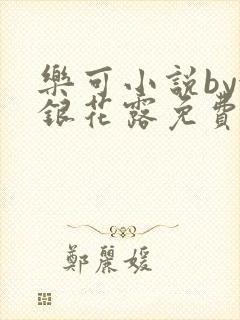 樂可小說by
銀花露免費
鄭麗媛